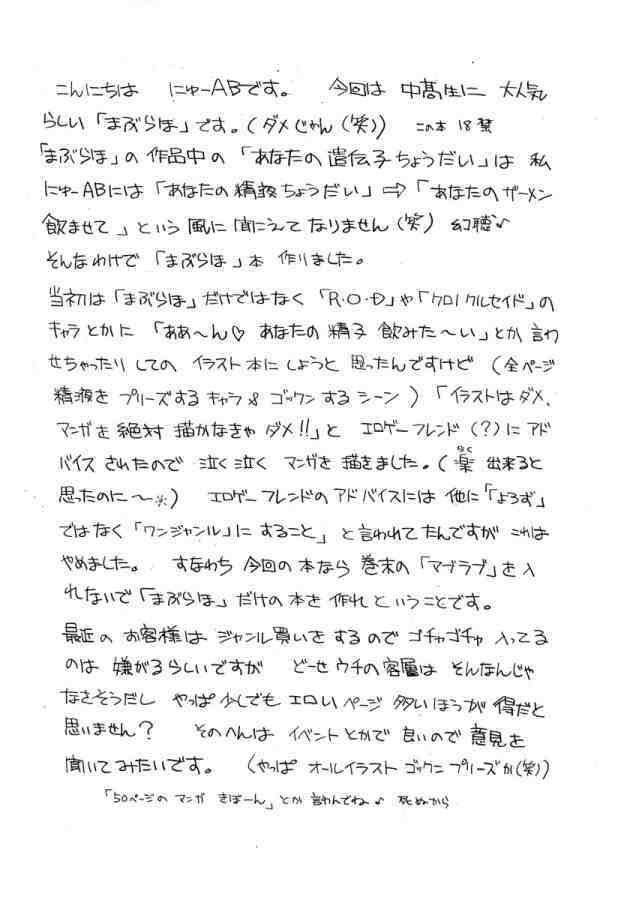 こんにちは にゅーABです。 今回は 中高生に 大人気
らしい「まぶらほ」です。(ダメじゃん(笑)) この本 18禁
「まぶらほ」の 作品中の 「あなたの遺伝子ちょうだい」は 私
にゅーABには 「あなたの精液ちょうだい」⇒「あなたのザーメン
飲ませて」という 風に 聞こえて なりません(笑) 幻聴♪
そんなわけで 「まぶらほ」本 作りました。
当初は「まぶらほ」だけではなく「R・O・D」や「クロノクルセイド」の
キャラとかに 「ああ〜ん♡ あなたの精子 飲みた〜い」とか 言わ
せちゃったり しての イラスト本にしようと 思ったんですけど (全ページ
精液を プリーズする キャラ& ゴックン する シーン )「イラストは ダメ、
マンガを 絶対 描かなきゃ ダメ!!」と エロゲーフレンド(?)に アド
バイス されたので 泣く泣く マンガを 描きました。(楽 出来ると
らく
思ったのに〜*) エロゲーフレンドのアドバイスには 他に「「よろず」
ではなく「ワンジャンル」に すること」 と 言われてたんですが これは
やめました。 すなわち 今回の 本なら 巻末の 「マブラブ」を 入
れないで「まぶらほ」だけの 本を 作れ ということです。
最近の お客様は ジャンル買いを するので ゴチャゴチャ 入ってる
のは 嫌がるらしいですが どーせ ウチの客層は そんなんじゃ
なさそうだし やっぱ 少しでも エロいページ 多いほうが 得だと
思いません? そのへんは イベントとかで 良いので 意見を
聞いてみたいです。 (やっぱ オールイラスト ゴックン プリーズか(笑))
「50ページの マンガ きぼーん」とか 言わんでね♪ 死ぬから